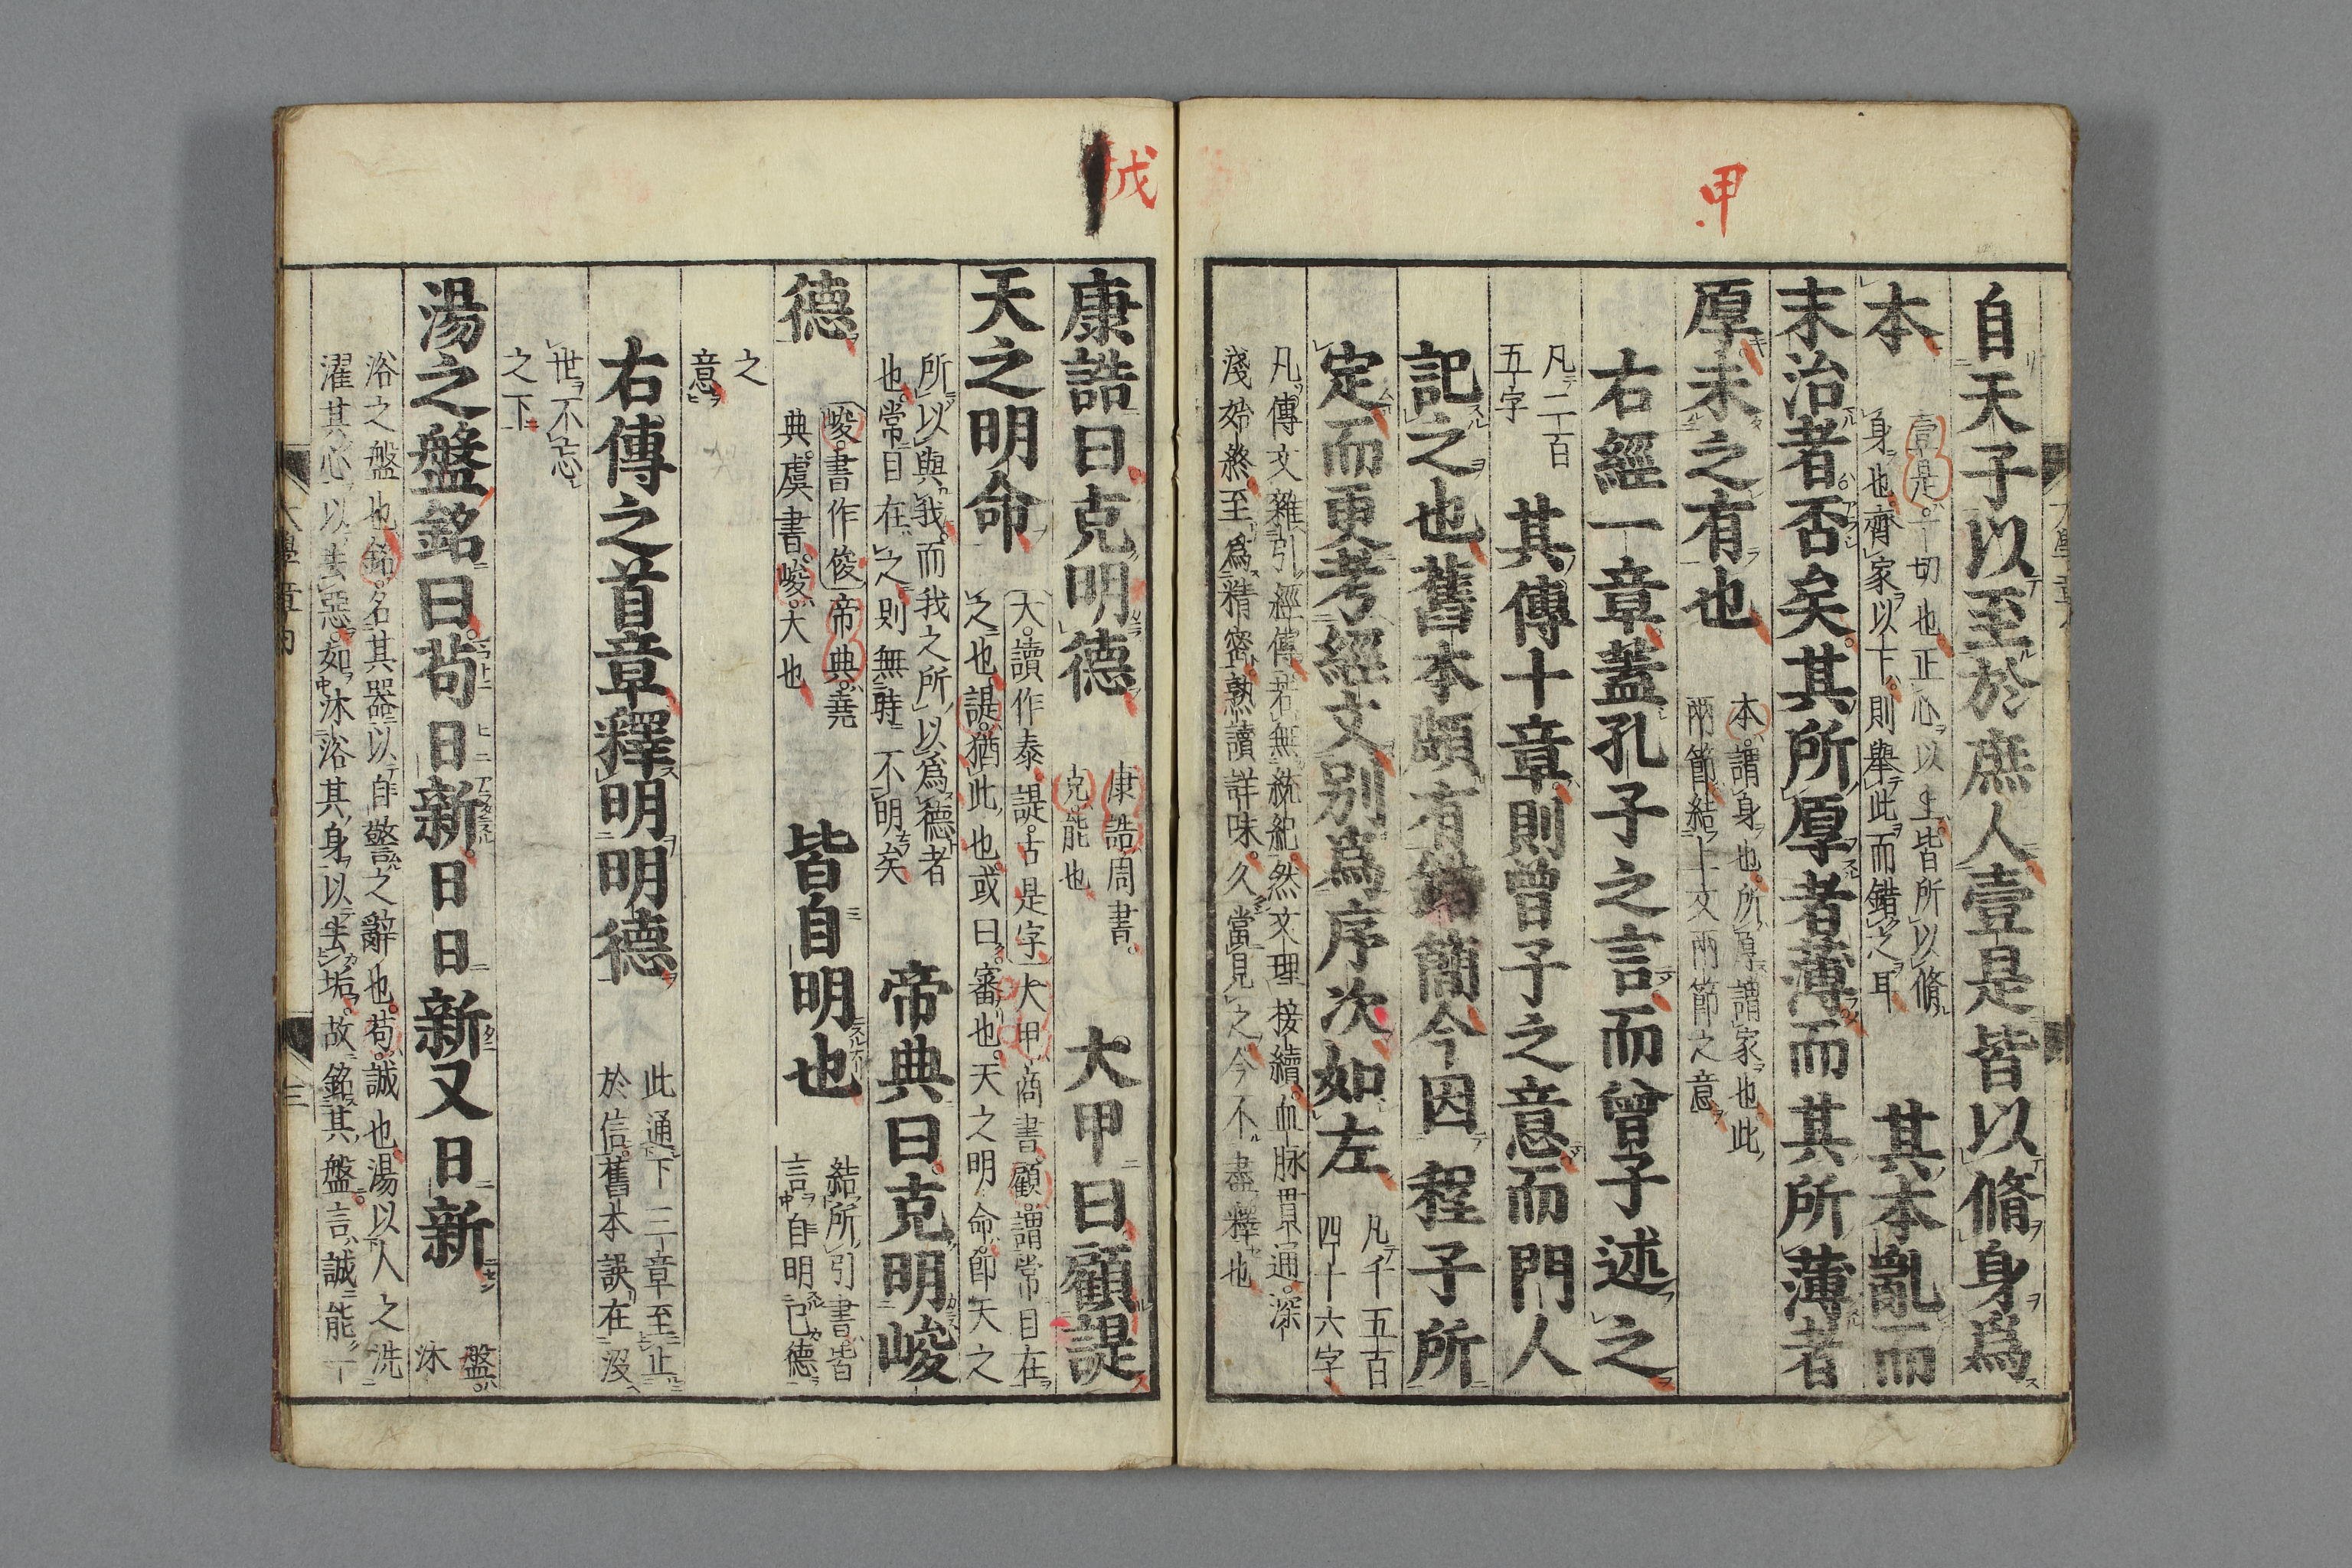 甲
自天子以至於庶人壹是皆以脩身爲
本
壹是一切也正心以上皆所以脩
身也齊家以下則舉此而錯之耳
其本亂而
末治者否矣其所厚者薄而其所薄者
厚未之有也
本謂身也所厚謂家也此
兩節結上文兩節之意
右經一章蓋孔子之言而曾子述之
凡二百
五字
其傳十章則曾子之意而門人
記之也舊本頗有錯簡今因程子所
定而更考經文别爲序次如左
凡千五百
四十六字
凡傳文雜引經傳若無統紀然文理接續血脉貫通深
淺始終至爲精密熟讀詳味久當見之今不盡釋也
戊
康誥曰克明德
康誥周書
克能也
大甲曰顧諟
天之明命
大讀作泰諟古是字大甲商書顧謂常目在
之也諟猶此也或曰審也天之明命卽天之
所以與我而我之所以爲德者
也常目在之則無時不明矣
帝典曰克明峻
德
峻書作俊帝典堯
典虞書峻大也
皆自明也
結所引書皆
言自明己德
之
意
右傳之首章釋明明德
此通下三章至止
於信舊本誤在沒
世不忘
之下
湯之盤銘曰苟日新日日新又日新
盤
沐
浴之盤也銘名其器以自警之辭也苟誠也湯以人之洗
濯其心以去惡如沐浴其身以去垢故銘其盤言誠能一
大學章句
三